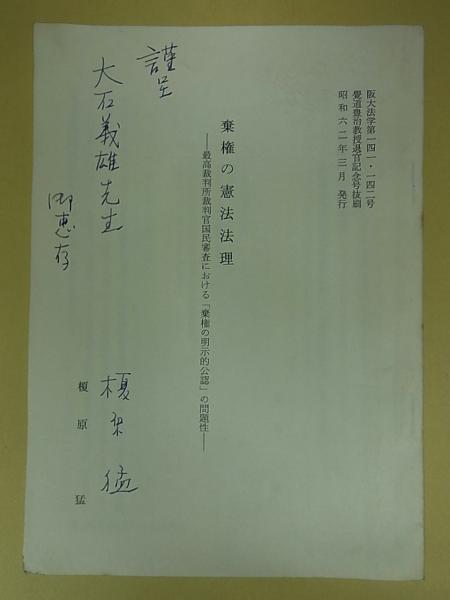 阪大法学第一四一・一四二号
覺道豊治教授退官記念号抜刷
昭和六二年三月 発行
棄権の憲法法理
――最高裁判所裁判官国民審査における「棄権の明示的公認」の問題性――
榎原 猛
謹呈
大石義雄先生
御恵存
榎原 猛